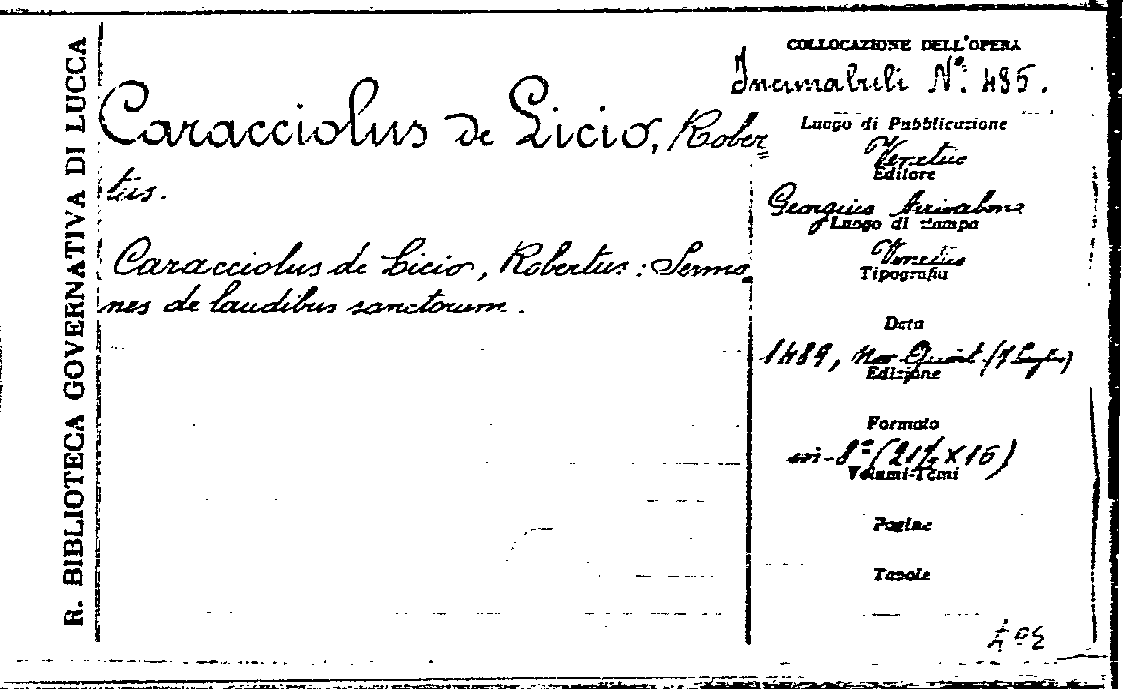 R. BIBLIOTECA GOVERNATIVA DI LUCCA
Caracciolus de Licio, Rober=
tus.
Caracciolus de Licio, Robertus: Sermo=
nes de laudibus sanctorum.
COLLOCAZIONE DELL'OPERA
Incunabuli N.° 485.
Luogo di Pubblicazione
Venetus
Editore
Georgius Arrivabene
Luogo di stampa
Venetus
Tipografia
Data
1489, Non Quint (7 Luglio)
Edizione
Formato
in-8° (21½ X 16)
Volumi-Tomi
Pagine
Tavole